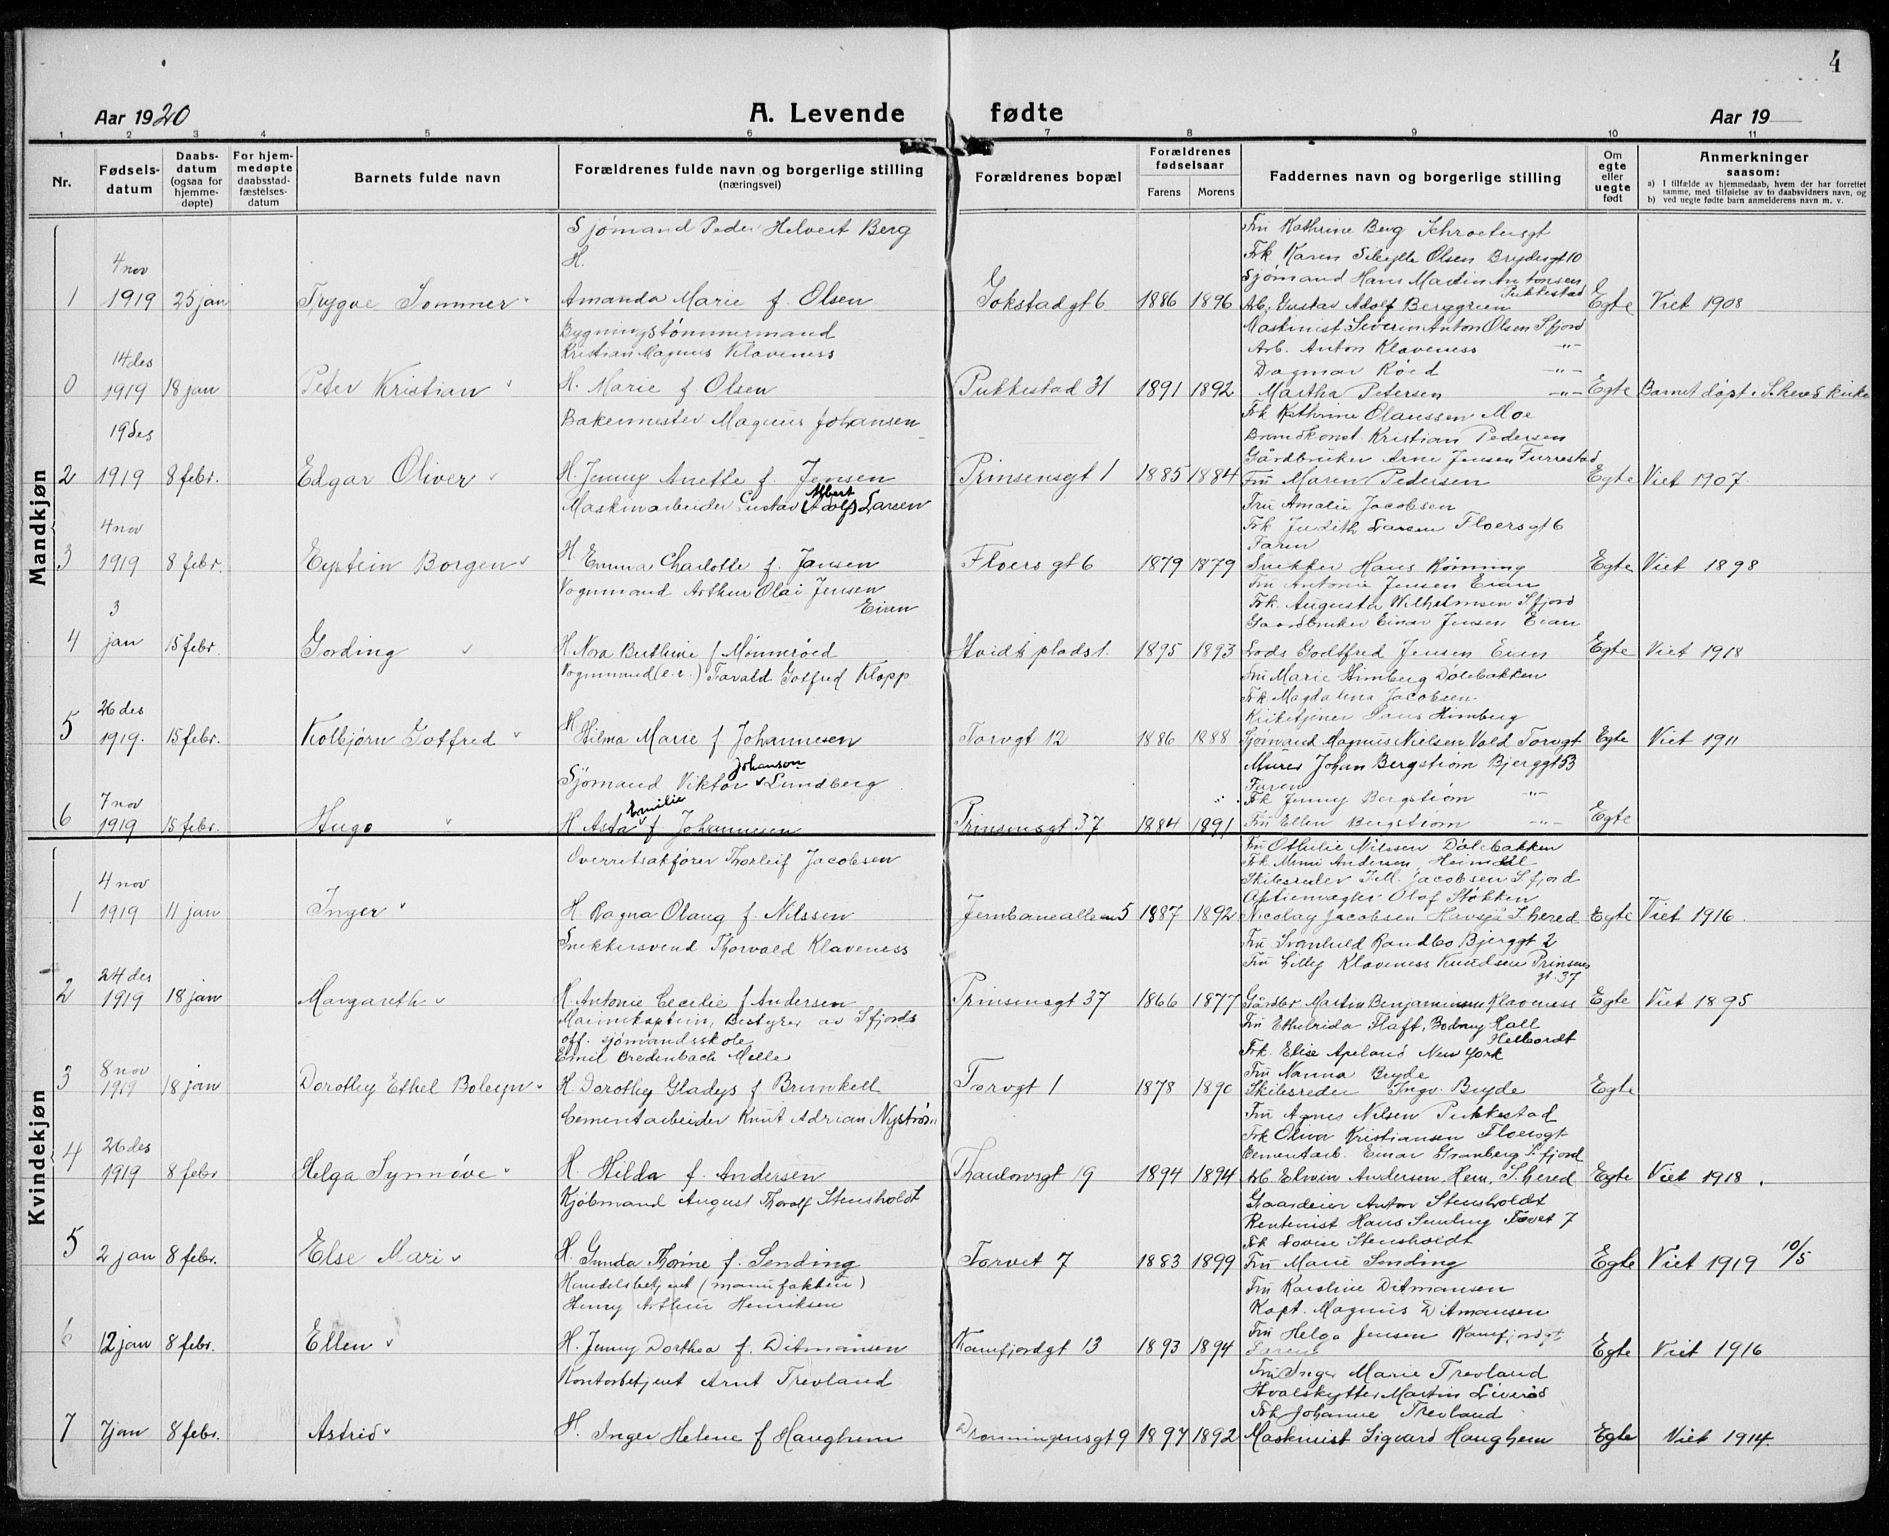 4
Aar 1920 A. Levende fødte Aar 19
1 2 3 4 5 6 7 8 9 10 11
Nr.
Fødsels-
datum
Daabs-
datum
(ogsaa for
hjemme-
døpte)
For hjem-
medøpte
daabsstad-
fæstelses-
datum
Barnets fulde navn
Forældrenes fulde navn og borgerlige stilling
(næringsvei)
Forældrenes bopæl
Forældrenes
fødselsaar
Farens Morens
Faddernes navn og borgerlige stilling
Om
egte
eller
uegte
født
Anmerkninger
saasom:
a) I tilfælde av hjemmedaab, hvem der har forrettet
samme, med tilføielse av to daabsvidners navn, og
b) ved uegte fødte barn anmelderens navn m. v.
Mandkjøn
Sjømand Peder Helvert Berg
H.
Fru Kathrine Berg Schroetersgt
Frk Karen Sibylle Olsen Brydesgt 10
Sjømand Hans Martin Antonsen
Pukkestad
4 nov
1 1919 25 jan Trygve Sommer Amanda Marie f. Olsen Gokstadgt 6 1886 1896 Arb. Gustav Adolf Berggreen Egte Viet 1908
Bygningstømmermand
Kristian Magnus Klaveness
Maskinist Severin Anton Olsen Sfjord
Arb. Anton Klaveness -"-
Dagmar Røed -"-
14 des
0 1919 18 jan Peter Kristian H. Marie f. Olsen Pukkestad 31 1891 1892 Martha Petersen -"- Egte Barnet døpt i Skeved kirke
Bakermester Magnus Johansen
Frk Kathrine Olaussen Moe
Brandkonst. Kristian Pedersen
Gårdbruker Arne Jensen Furrestad
19 des
2 1919 8 febr. Edgar Oliver H. Jenny Anette f. Jensen Prinsensgt 1 1885 1884 Fru Maren Pedersen Egte Viet 1907
Albert
Maskinarbeider Gustav (Adolf) Larsen
Fru Amalie Jacobsen
Frk Judith Larsen Floersgt 6
Faren
4 nov
3 1919 8 febr. Eystein Borgen H Emma Charlotte f. Jansen Floersgt 6 1879 1879 Snekker Hans Rønning Egte Viet 1898
Vognmand Arthur Olai Jensen
Eian
Fru Antonie Jensen Eian
Frk. Augusta Wilhelmsen Sfjord
Gaardbruker Einar Jensen Eian
3
4 jan 15 febr. Gording H. Nora Bertline f Mønnerød Hvidts plads 1. 1895 1893 Lods Godtfred Jensen Eian Egte Viet 1918
Vognmand (e.r.) Tarald Gotfred Klopp
Fru Marie Himberg Dølebakken
Frk. Magdalena Jacobsen
Kirketjener Lars Himberg
26 des
5 1919. 15 febr. Kolbjørn Gotfred H Hilma Marie f Johannesen Torvgt 12 1886 1888 Sjømand Magnus Nielsen Vold Torvgt Egte Viet 1911
Johanson
Sjømand Viktor Lundberg
Murer Johan Bergstrøm Bjerggt 53
Faren
Frk Jenny Bergstrøm -"-
7 nov
6 1919 15 febr. Hugo H Asta Emilie f Johannesen Prinsensgt 37 1884 1891 Fru Ellen Bergstrøm -"- Egte
Kvindekjøn
Overretsakfører Thorleif Jacobsen
Fru Othilie Nilssen Dølebakken
Frk. Mimi Andersen, Heimdal
Skibsreder Joh. Jacobsen Sfjord
Aftienvægter Olaf Støkken
4 nov
1 1919 11 jan Inger H Ragna Olaug f. Nilssen Jernbanealleen 5 1887 1892 Nicolay Jacobsen Havsjå S. hered Egte Viet 1916
Snekkersvend Thorvald Klaveness
Fru Svanhild Randbo Bjerggt 2
Fru Lilly Klaveness Knudsen Prinsens
gt. 37
24 des
2 1919 18 jan Margareth H. Antonie Cecilie f Andersen Prinsensgt 37 1866 1877 Gårdbr Martin Benjaminsen Klaveness Egte Viet 1895
Marinekaptein, Bestyrer av Sfjords
off. sjømandsskole
Emil Bredenbach Melle
Fru Ethelrida Flaft, Bodney Hall
Frk. Elise Apeland New York
Fru Nanna Bryde
8 nov
3 1919 18 jan Dorothey Ethel Boleyn H Dorothey Gladys f Brunkell Torvgt 1 1878 1890 Skibsreder Ingv. Bryde Egte
Cementarbeider Knut Adrian Nystrøm
Fru Agnes Nilsen Pukkestad
Frk Oliva Kristiansen Floersgt
Cementarb. Einar Granberg S. fjord
26 des
4 1919 8 febr Helga Synnøve H. Hilda f. Andersen Thaulowsgt 19 1894 1894 Arb. Edwin Andersen, Hem, S. hered Egte Viet 1918.
Kjøbmand August Thoralf Stensholdt
Gaardeier Anton Stensholdt
Rentenist Hans Sending Torvet 7
Frk Lovise Stensholdt
5 2 jan 8 febr. Else Mari H. Gunda Thorine f. Sending Torvet 7 1883 1899 Fru Marie Sending Egte Viet 1919 10/5
Handelsbetjent (manufaktur)
Henry Arthur Henriksen
Fru Karoline Ditmansen
Kapt. Magnus Ditmansen
Fru Helga Jensen Kamfjordgt
6 12 jan 8 febr. Ellen H. Jenny Dorthea f. Ditmansen Kamfjordgt 13 1893 1894 Faren Egte Viet 1916
Kontorbetjent Arnt Trevland
Fru Inger Marie Trevland
Hvalskytter Martin Liverød
Frk Johanne Trevland
7 7 jan 8 febr. Astrid H. Inger Helene f Haughem Dronningensgt 9 1897 1892 Maskinist Sigvard Haughem Egte Viet 1914.